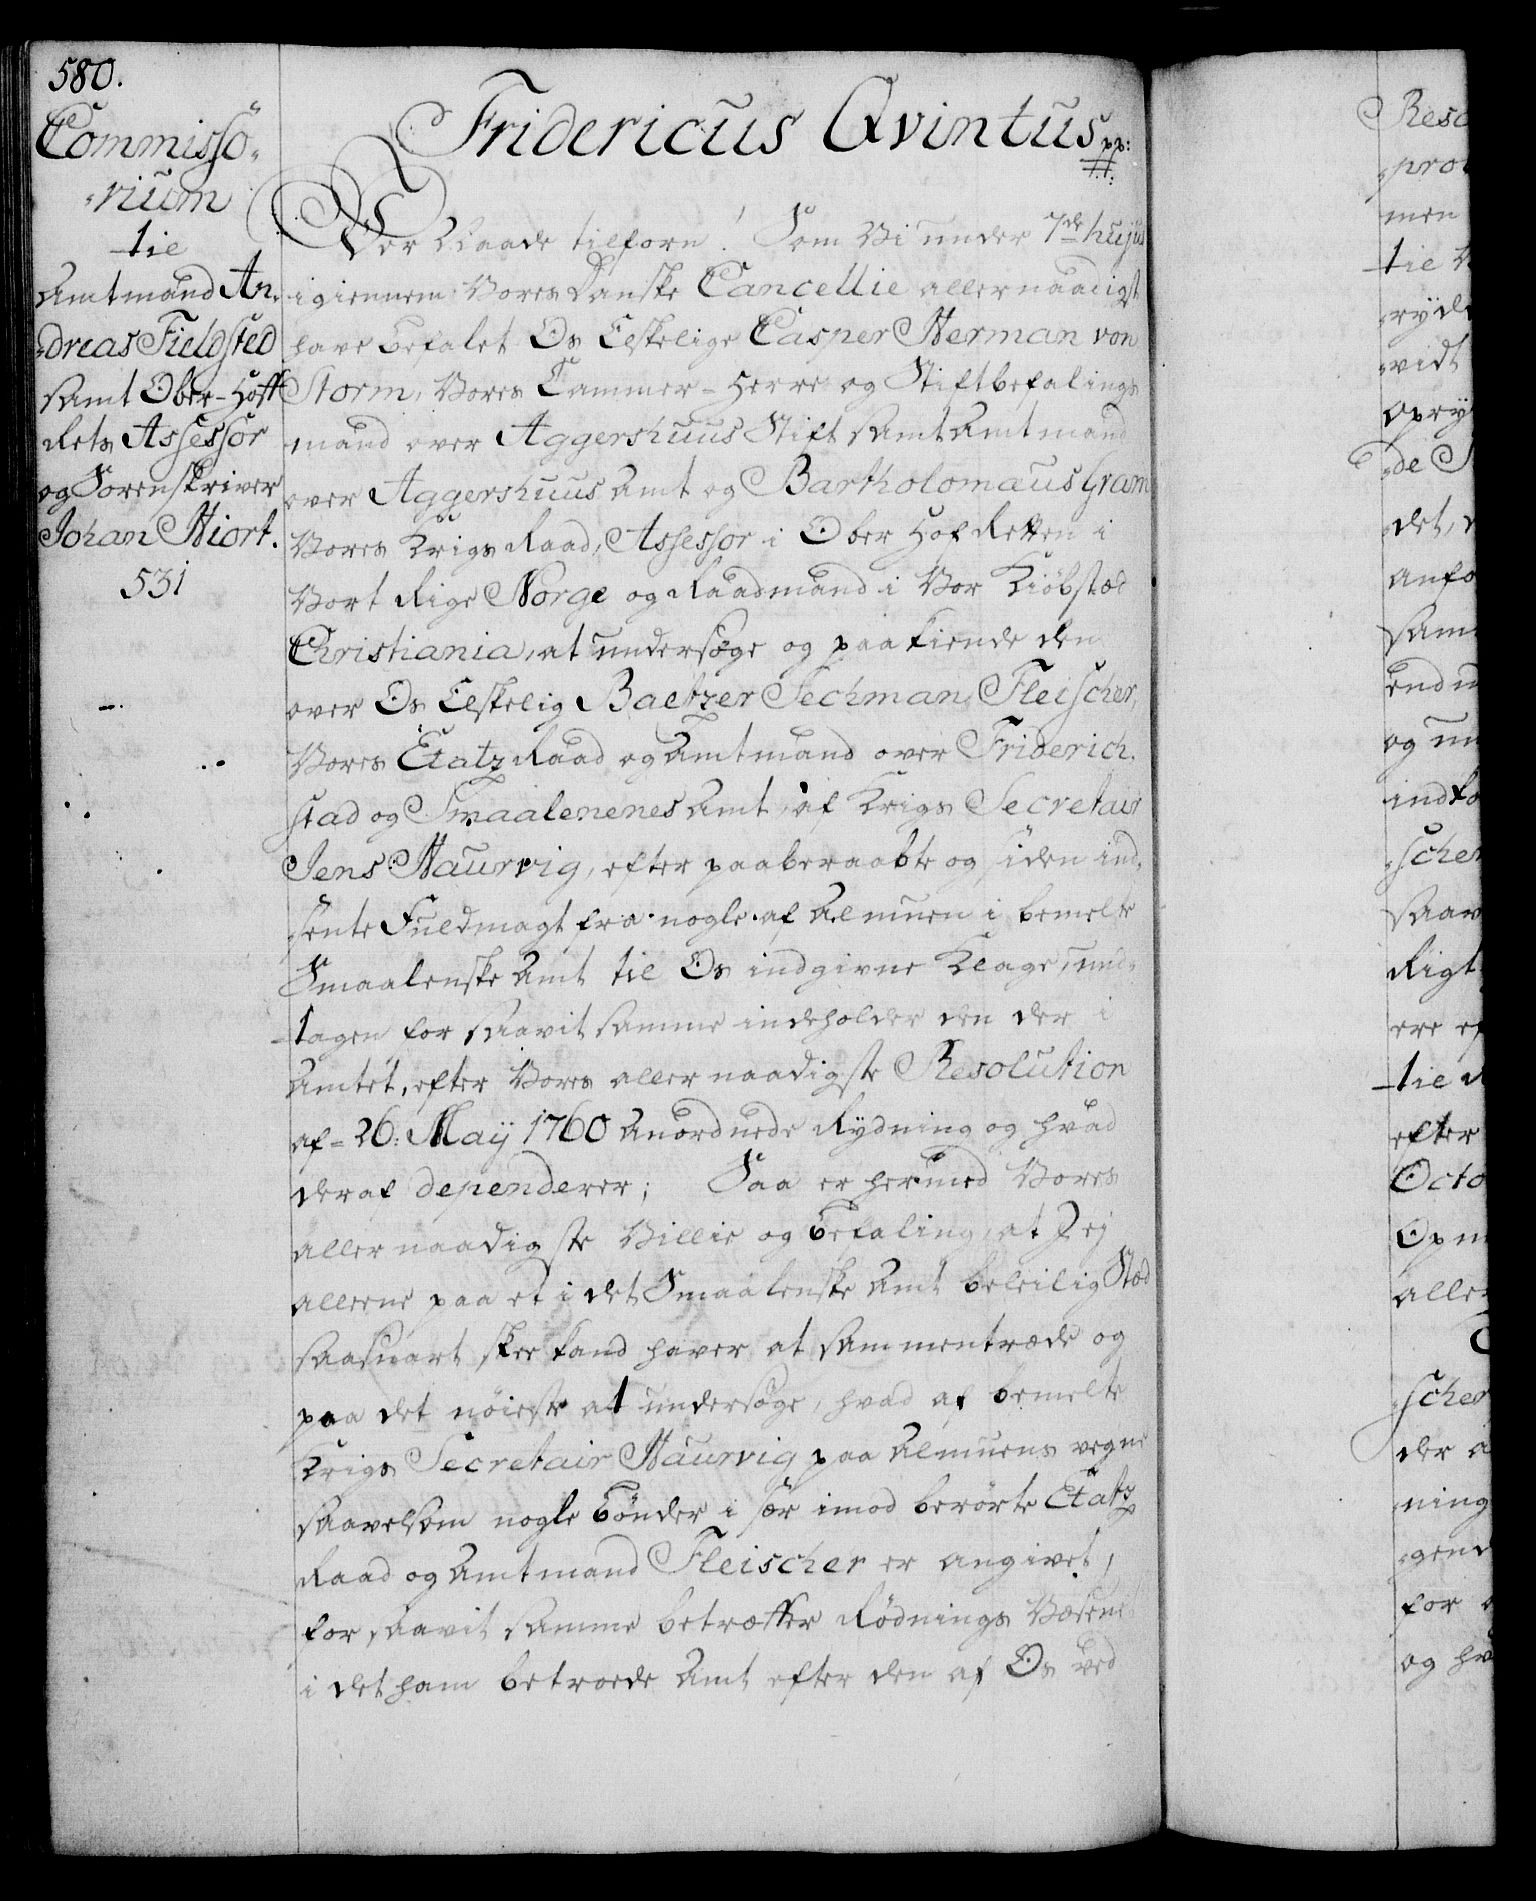 580.
Commisso-
-rium
tie
Amtmand An-
-dreas Fieldsted
samt Ober-Hoff
Rets Assessor
og Sorenskriver
Johan Hiort.
531
Fridericus Qvintus pp:
Vor Naade tilforn! Som Vi under 7de hujus
igiennem Vores Danske Cancellie allernaadigst
have befalet Os Elskelige Casper Herman von
Storm, Vores Cammer-Herre og Stiftbefalings
mand over Aggershuus Stift samt Amtmand
over Aggershuus Amt og Bartholomæus Gram
Vores Krigs Raad, Assessor i Ober Hof Retten i
Vort Rige Norge og Raadmand i Vor Kiöbstæd
Christiania, at undersøge og paakiende den
over Os Elskelig Baltzer Sechman Fleischer,
Vores Etatz Raad og Amtmand over Friderich-
stad og Smaalenenes Amt, af Krigs Secretair
Jens Haurvig, efter paaberaabte og siden ind-
sente Fuldmagt fra nogle af Almuen i bemelte
Smaalenske Amt til Os indgivne Klage, und-
tagen for saavit samme indeholder den der i
Amtet, efter Vores allernaadigste Resolution
af 26: Maij 1760 anordnede Rydning og hvad
deraf dependerer; Saa er hermed Vores
allernaadigste Villie og Befaling, at I ej
alleene paa et i det Smaalenske Amt beleilig Stæd
saasnart skee kand haver at sammentræde og
paa det nöieste at undersöge, hvad af bemelte
Krigs Secretair Haurvig paa Almuens vegne
saavelsom nogle Bönder i sær imod berörte Etatz
Raad og Amtmand Fleischer er angivet,
for saavit samme betræffer Rödnings Væsenet
i det ham betroede Amt efter den af Os ved
Reso
-pro
men
tie
-ryd
-vidt
opry
-de
det,
anfo
sam
end
og un
indko
-scher
saav
Rigt
ere ef
tie
efter
Octo
Opm
aller
scher
der a
-ning
-gend
for
og hv